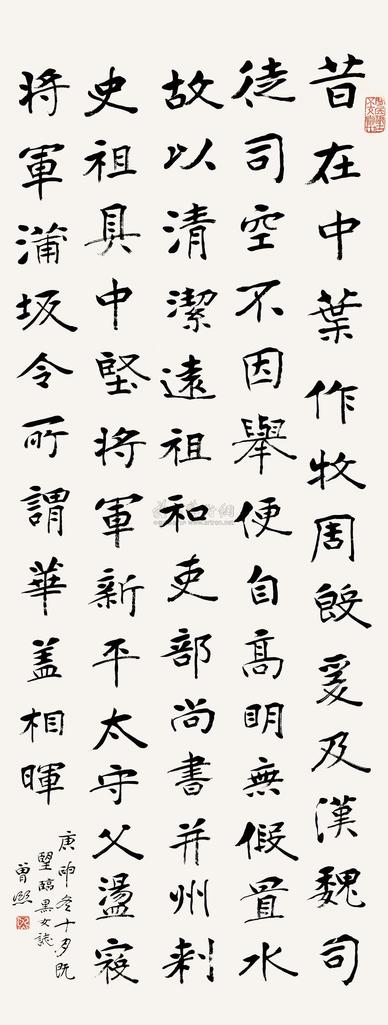 昔在中葉作牧周殷爰及漢魏司
徒司空不因舉便自高明無假置水
故以清潔遠祖和吏部尚書并州刺
史祖具中堅将軍新平太守父盪寇
将軍蒲坂令所謂華盖相暉
庚申冬十月既
望臨黑女誌
曾熙